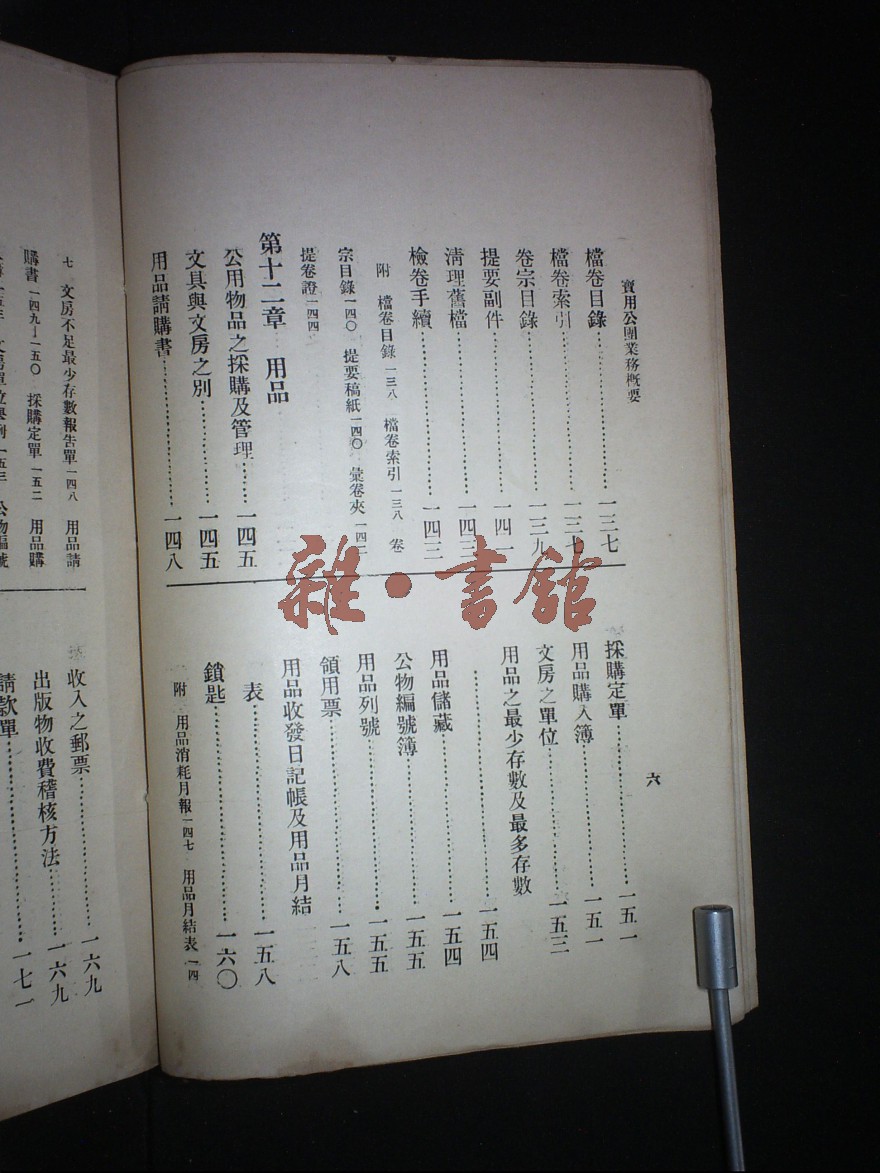 實用公團業務概要
六
檔卷目錄……一三七
檔卷索引……一三七
卷宗目錄……一三九
提要副件……一四一
清理舊檔……一四三
檢卷手續……一四三
附 檔卷目錄一三八 檔卷索引一三八 卷
宗目錄一四〇 提要稿紙一四〇 彙卷夾一四
提卷證一四四
第十二章 用品
公用物品之採購及管理……一四五
文具與文房之別……一四五
用品請購書……一四八
採購定單……一五一
用品購入簿……一五一
文房之單位……一五三
用品之最少存數及最多存數
……一五四
用品儲藏……一五四
公物編號簿……一五五
用品列號……一五五
領用票……一五八
用品收發日記帳及用品月結
表……一五八
鎖匙……一六〇
附 用品消耗月報一四七 用品月結表一四
七 文房不足最少存數報告單一四八 用品請
購書一四九—一五〇 採購定單一五二 用品購
收入之郵票……一六九
出版物收費稽核方法……一六九
請款單……一七一
雜·書館